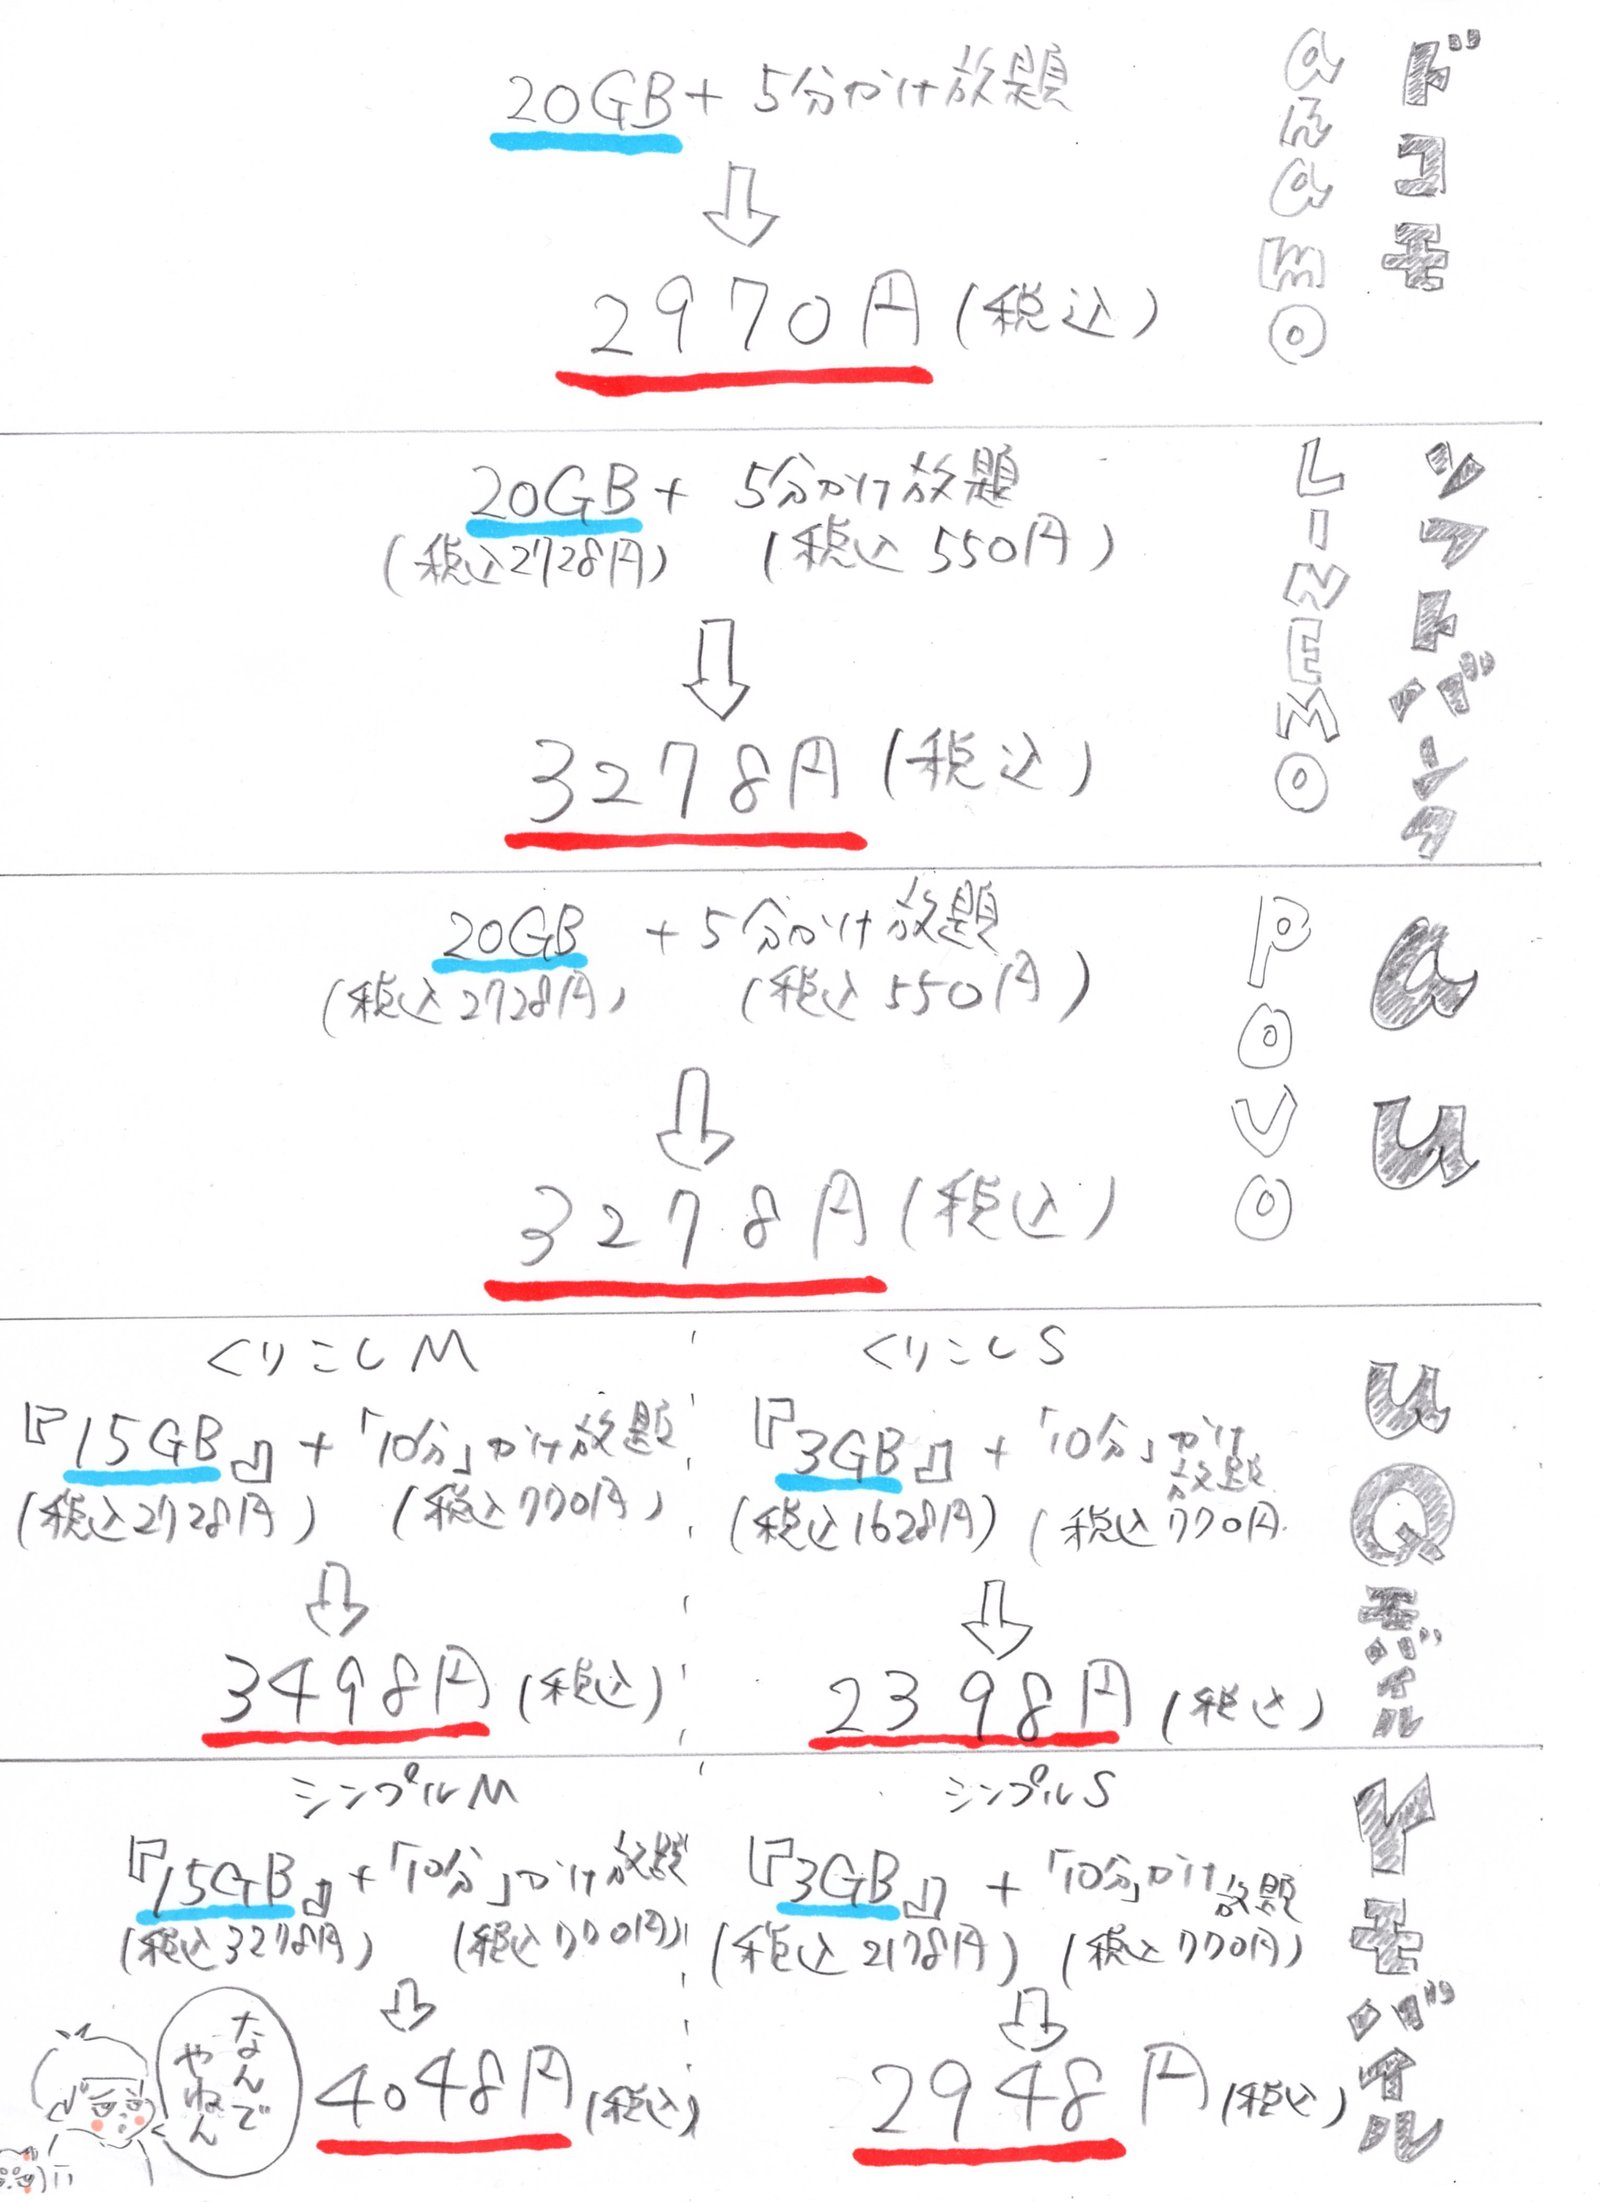 ドコモ
ahamo
20GB + 5分かけ放題
2970円(税込)
ソフトバンク
LINEMO
20GB + 5分かけ放題
(税込2728円) (税込550円)
3278円(税込)
au
povo
20GB + 5分かけ放題
(税込2728円) (税込550円)
3278円(税込)
UQモバイル
くりこしM
『15GB』+「10分」かけ放題
(税込2728円) (税込770円)
3498円(税込)
くりこしS
『3GB』+「10分」かけ放題
(税込1628円) (税込770円
2398円(税込)
Yモバイル
シンプルM
『15GB』+「10分」かけ放題
(税込3278円) (税込770円)
4048円(税込)
シンプルS
『3GB』+「10分」かけ放題
(税込2178円) (税込770円)
2948円(税込)
なんで
やねん